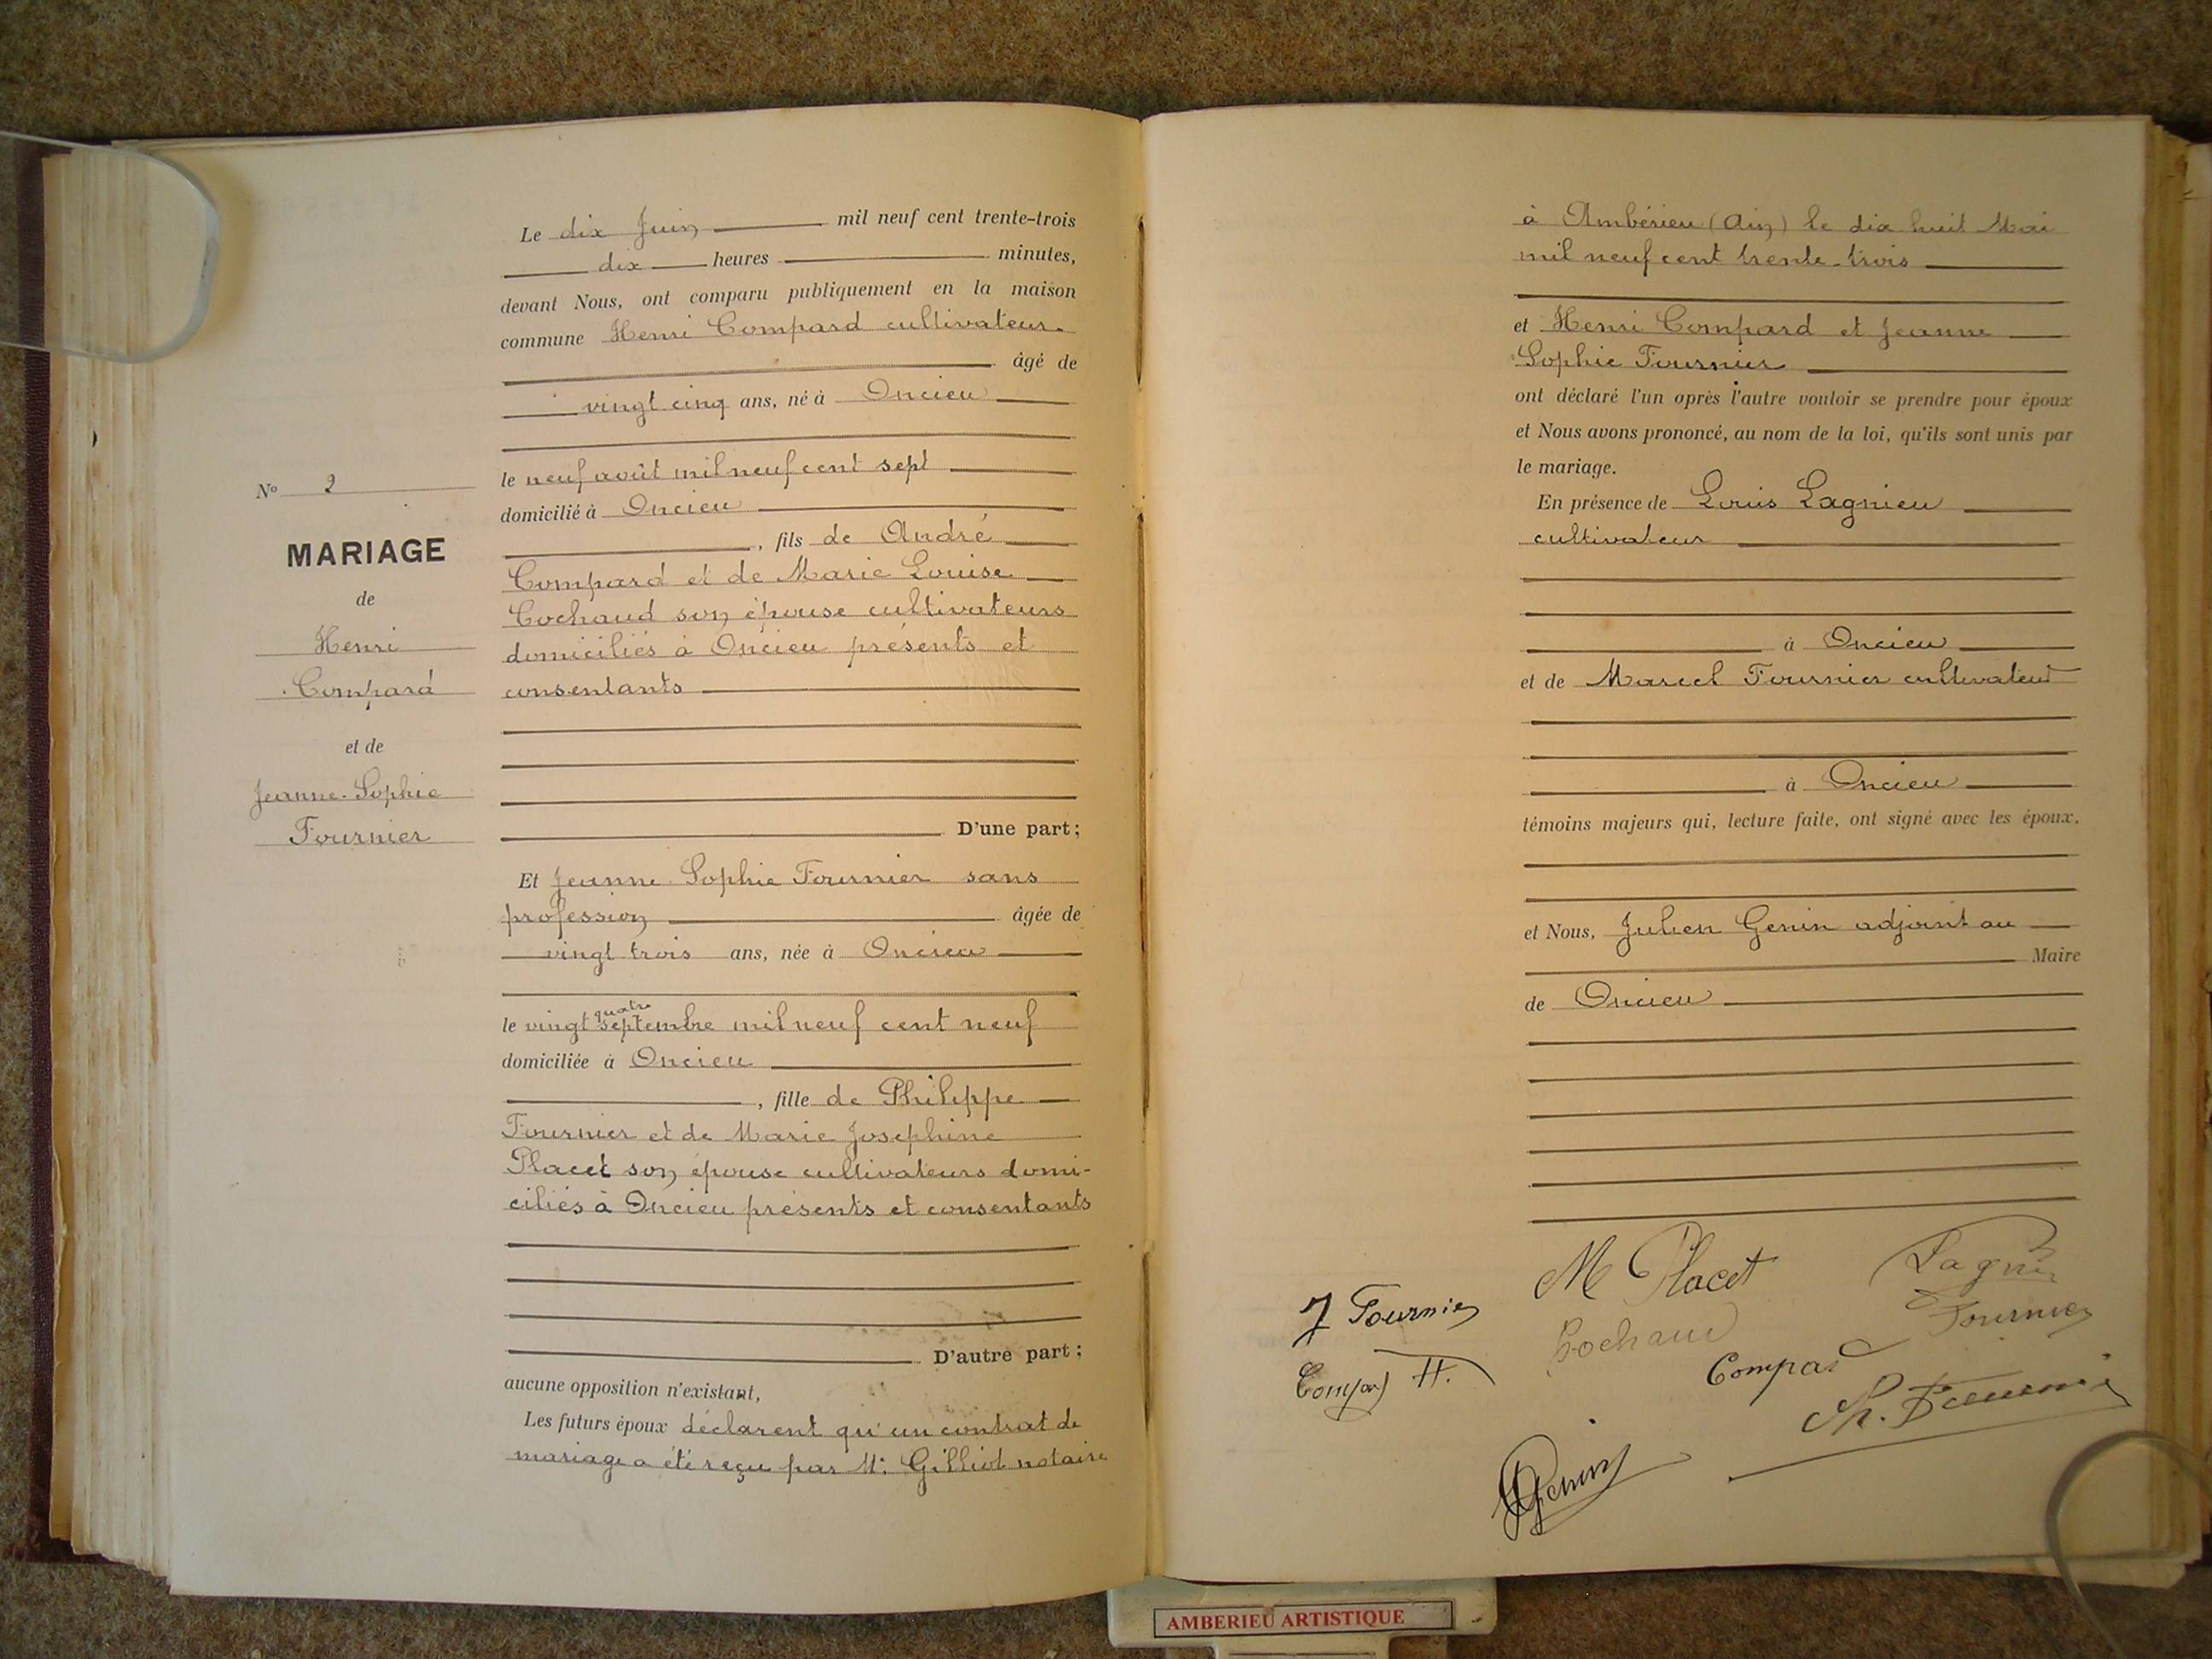 Le dix Juin mil neuf cent trente-trois
dix heures minutes,
devant Nous, ont comparu publiquement en la maison
commune Henri Compard cultivateur
âgé de
vingt cinq ans, né à Oncieu
le neuf août mil neuf cent sept
domicilié à Oncieu
, fils de André
Compard et de Marie Louise
Cochaud son épouse cultivateurs
domiciliés à Oncieu présents et
consentants
D'une part;
Et Jeanne Sophie Fournier sans
profession âgée de
vingt trois ans, née à Oncieu
quatre
le vingt septembre mil neuf cent neuf
domiciliée à Oncieu
, fille de Philippe
Fournier et de Marie Josephine
Placet son épouse cultivateurs domi-
ciliés à Oncieu présents et consentants
D'autre part;
aucune opposition n'existant,
Les futurs époux déclarent qu'un contrat de
mariage a été reçu par Me Gilliot notaire
No 2
MARIAGE
de
Henri
Compard
et de
Jeanne-Sophie
Fournier
à Ambérieu (Ain) le dix huit Mai
mil neuf cent trente-trois
et Henri Compard et Jeanne
Sophie Fournier
ont déclaré l'un après l'autre vouloir se prendre pour époux
et Nous avons prononcé, au nom de la loi, qu'ils sont unis par
le mariage.
En présence de Louis Lagnieu
cultivateur
à Oncieu
et de Marcel Fournier cultivateur
à Oncieu
témoins majeurs qui, lecture faite, ont signé avec les époux,
et Nous, Julien Genin adjoint au
Maire
de Oncieu
M Placet
J Fournier
Fournier
Cochaud
Compard H.
Compard
Ph. Fournier
Genin
AMBERIEU ARTISTIQUE